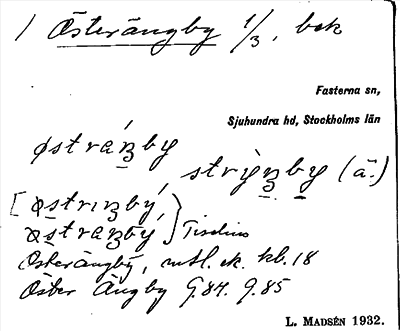 1 Österängby 1/3, bok
Fasterna sn,
Sjuhundra hd, Stockholms län
østraŋby
striŋby (ä.)
[østrɪŋby,
østraŋby Tiselius
Österängby, mtl. ek. kb. 18
Öster Ängby G.84. G.85
L. MADSÉN 1932.